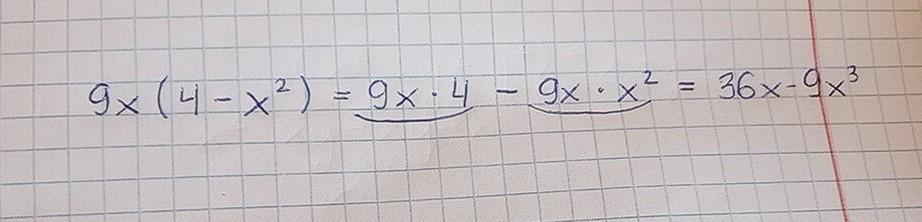 9x(4-x²) = 9x·4 - 9x·x² = 36x-9x³